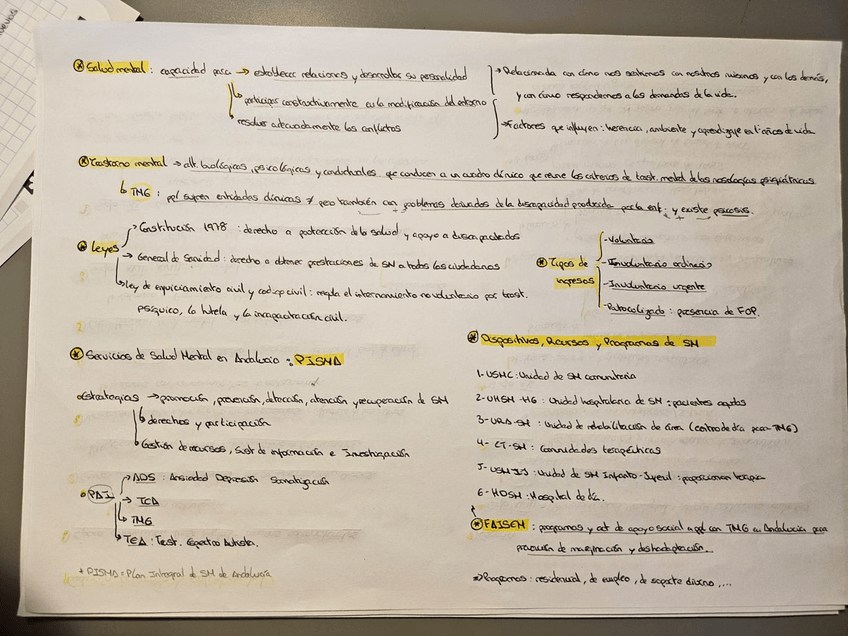 * Salud mental : capacidad para → establecer relaciones y desarrollar su personalidad
↳ participar constructivamente en la modificación del entorno
↳ resolver adecuadamente los conflictos
→ Relacionada con cómo nos sentimos con nosotros mismos y con los demás,
y con cómo respondemos a las demandas de la vida.
→ Factores que influyen : herencia, ambiente y aprendizaje en 1ºs años de vida
* Trastorno mental → alt. biológicas, psicológicas y conductuales que conducen a un cuadro clínico que reune los criterios de trast. mental de las nosologías psiquiátricas
↳ TMG : ppl sufren entidades clínicas ≠ pero también con problemas derivados de la discapacidad producida por la enf. y existe psicosis.
* Leyes → Constitución 1978 : derecho a protección de la salud y apoyo a discapacitados
→ General de Sanidad : derecho a obtener prestaciones de SM a todos los ciudadanos
↳ Ley de enjuiciamiento civil y código civil : regula el internamiento no voluntario por trast.
psíquico, la tutela y la incapacitación civil.
* Tipos de ingresos
- Voluntario
- Involuntario ordinario
- Involuntario urgente
- Protocolizado : presencia de FOP.
* Servicios de Salud Mental en Andalucía : PISMA
Estrategias → promoción, prevención, detección, atención y recuperación de SM
↳ derechos y participación
↳ Gestión de recursos, Sist. de información e Investigación
• PAI → ADS : Ansiedad Depresión Somatización
→ TCA
↳ TMG
↳ TEA : Trast. Espectro Autista.
* PISMA = Plan Integral de SM de Andalucía.
* Dispositivos, Recursos y Programas de SM
1- USMC : Unidad de SM comunitaria
2- UHSM-HG : Unidad hospitalaria de SM : pacientes agudos
3- URA-SM : Unidad de rehabilitación de área (centro de día para TMG)
4- CT-SM : Comunidades terapéuticas
5- USM-IJ : Unidad de SM Infanto-Juvenil : proporcionan terapia
6- HDSM : Hospital de día.
* FAISEM : programas y act. de apoyo social a ppl con TMG en Andalucía para
prevención de marginación y desadaptación...
⇒ Programas : residencial, de empleo, de soporte diurno, ...